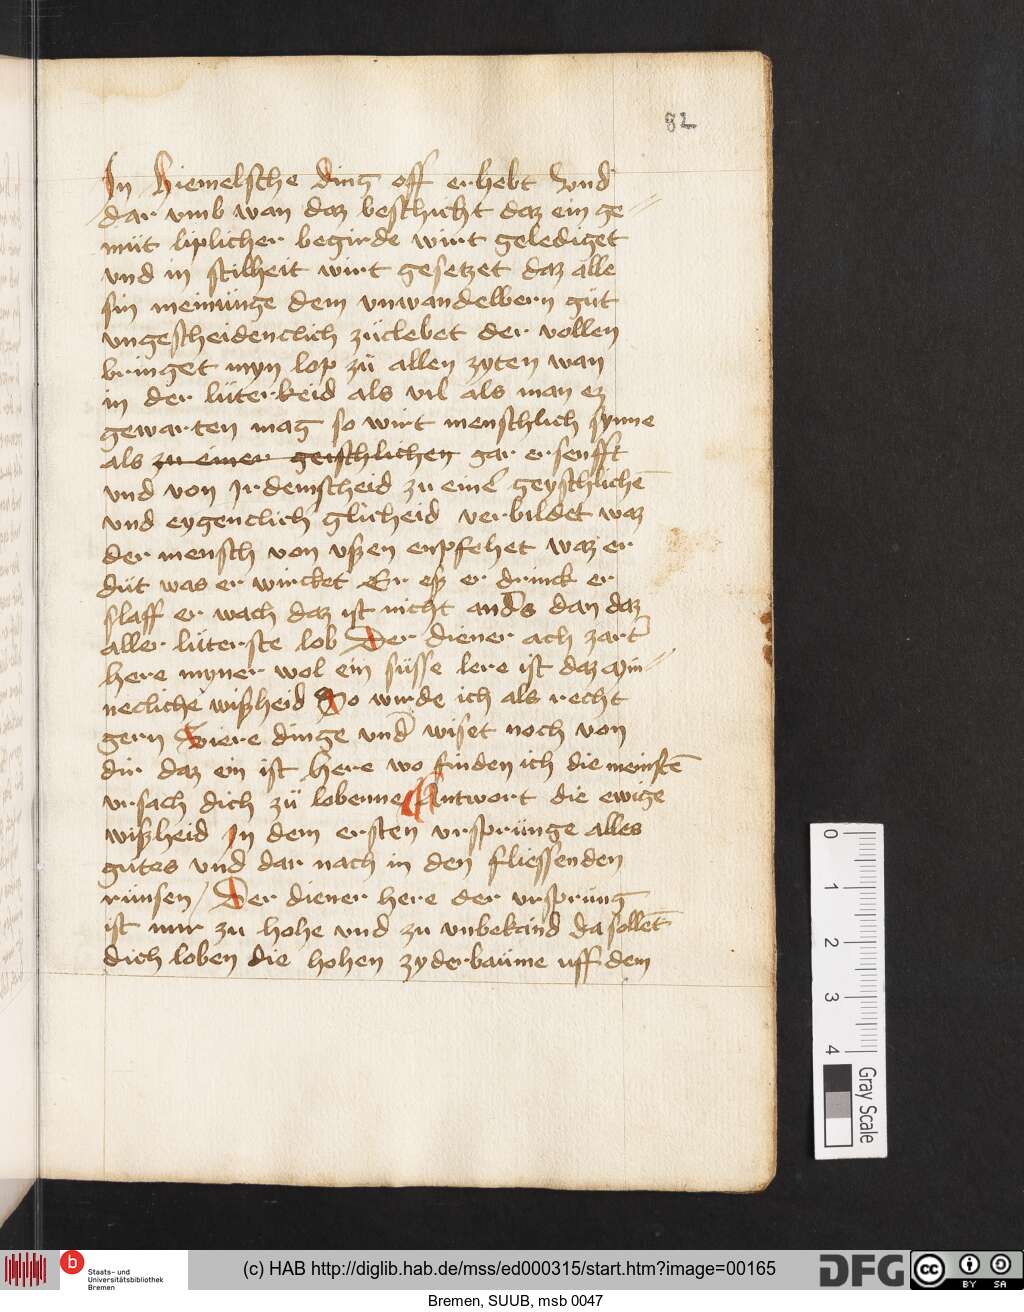 82
In hiemelsche ding off erhebt Vnd
dar vmb wan daz beschicht daz ein ge
müt liplicher begirde wirt gelediget
vnd in stilheit wirt gesetzet daz alle
sin meinünge dem vnwandelbern güt
vngescheidenclich züclebet der vollen
bringet myn lop zü allen zyten wan
in der lüterkeid als vil als man ez
gewarten mag so wirt menschlich synne
als zu einer geischlichen gar ersenfft
vnd von Irdemscheid zu einer geyschlichē
vnd eygenclich glicheid verbildet waz
der mensch von vßen enpfehet waz er
düt was er wircket Er eß er drinck er
slaff er wach daz ist nicht anders dan daz
aller lüterste lob Der diener ach zarter
here myner wol ein süsse lere ist daz myn
necliche wißheid So wirde ich als recht
gern Viere dinge vnd wiset noch von
dir daz ein ist here wo finden ich die meinstē
vrsach dich zü lobenne Antwort die ewige
wißheid In dem ersten vrsprünge alles
gutes vnd dar nach in den fliessenden
rünsen / Der diener here der vrsprüng
ist mir zu hohe vnd zu vnbekand da sollēt
dich loben die hohen zyderbaüme uff dem
0
1
2
3
4
Gray Scale
b
Staats- und
Universitätsbibliothek
Bremen
(c) HAB http://diglib.hab.de/mss/ed000315/start.htm?image=00165
DFG
cc
BY SA
Bremen, SUUB, msb 0047